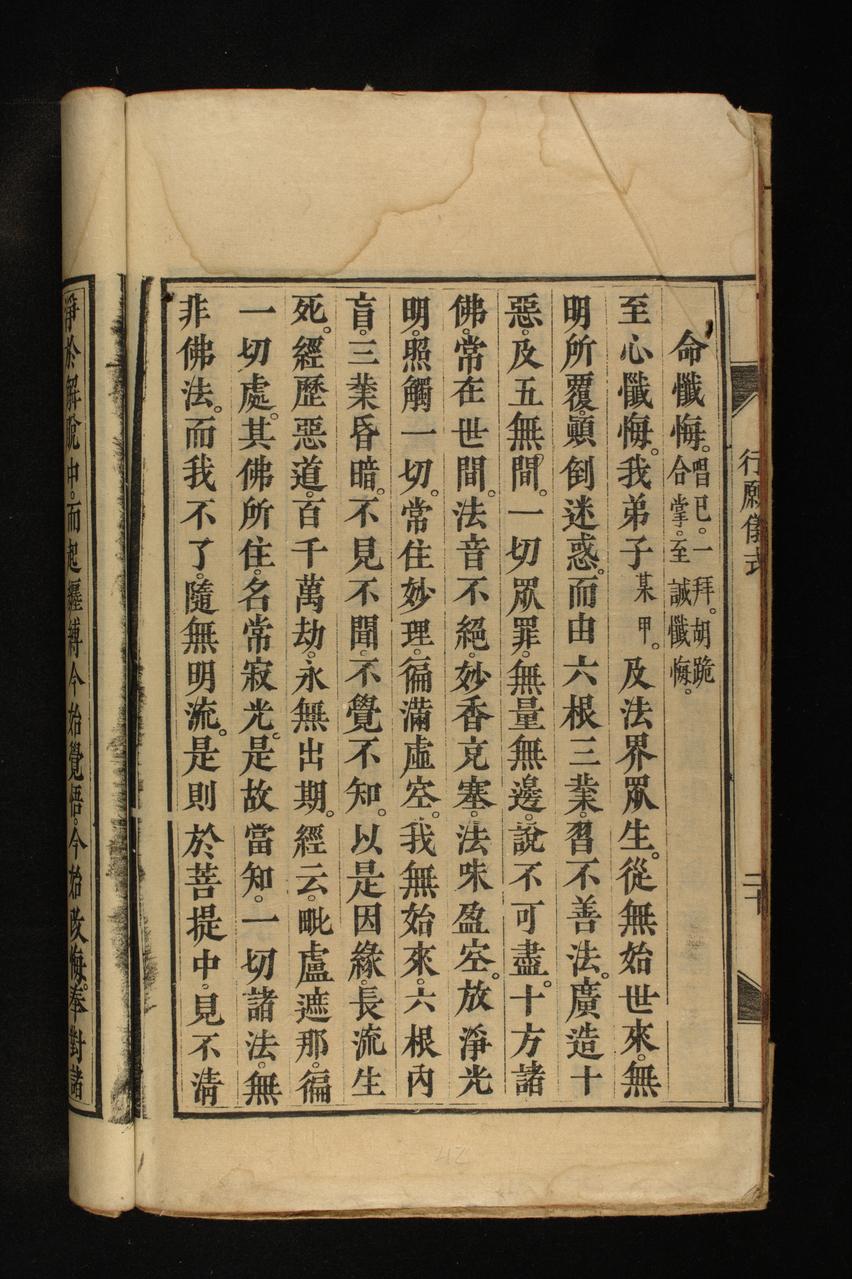 行願儀式
二十
命懺悔。唱已。一拜。胡跪合掌。至誠懺悔。
至心懺悔。我弟子某甲。及法界眾生。從無始世來。無
明所覆。顛倒迷惑。而由六根三業。習不善法。廣造十
惡。及五無間。一切眾罪。無量無邊。說不可盡。十方諸
佛。常在世間。法音不絕。妙香充塞。法味盈空。放淨光
明。照觸一切。常住妙理。徧滿虛空。我無始來。六根內
盲。三業昏暗。不見不聞。不覺不知。以是因緣。長流生
死。經歷惡道。百千萬劫。永無出期。經云。毗盧遮那。徧
一切處。其佛所住。名常寂光。是故當知。一切諸法。無
非佛法。而我不了。隨無明流。是則於菩提中。見不清
淨於解脫中。而起纏縛今始覺悟。今始改悔。奉對諸